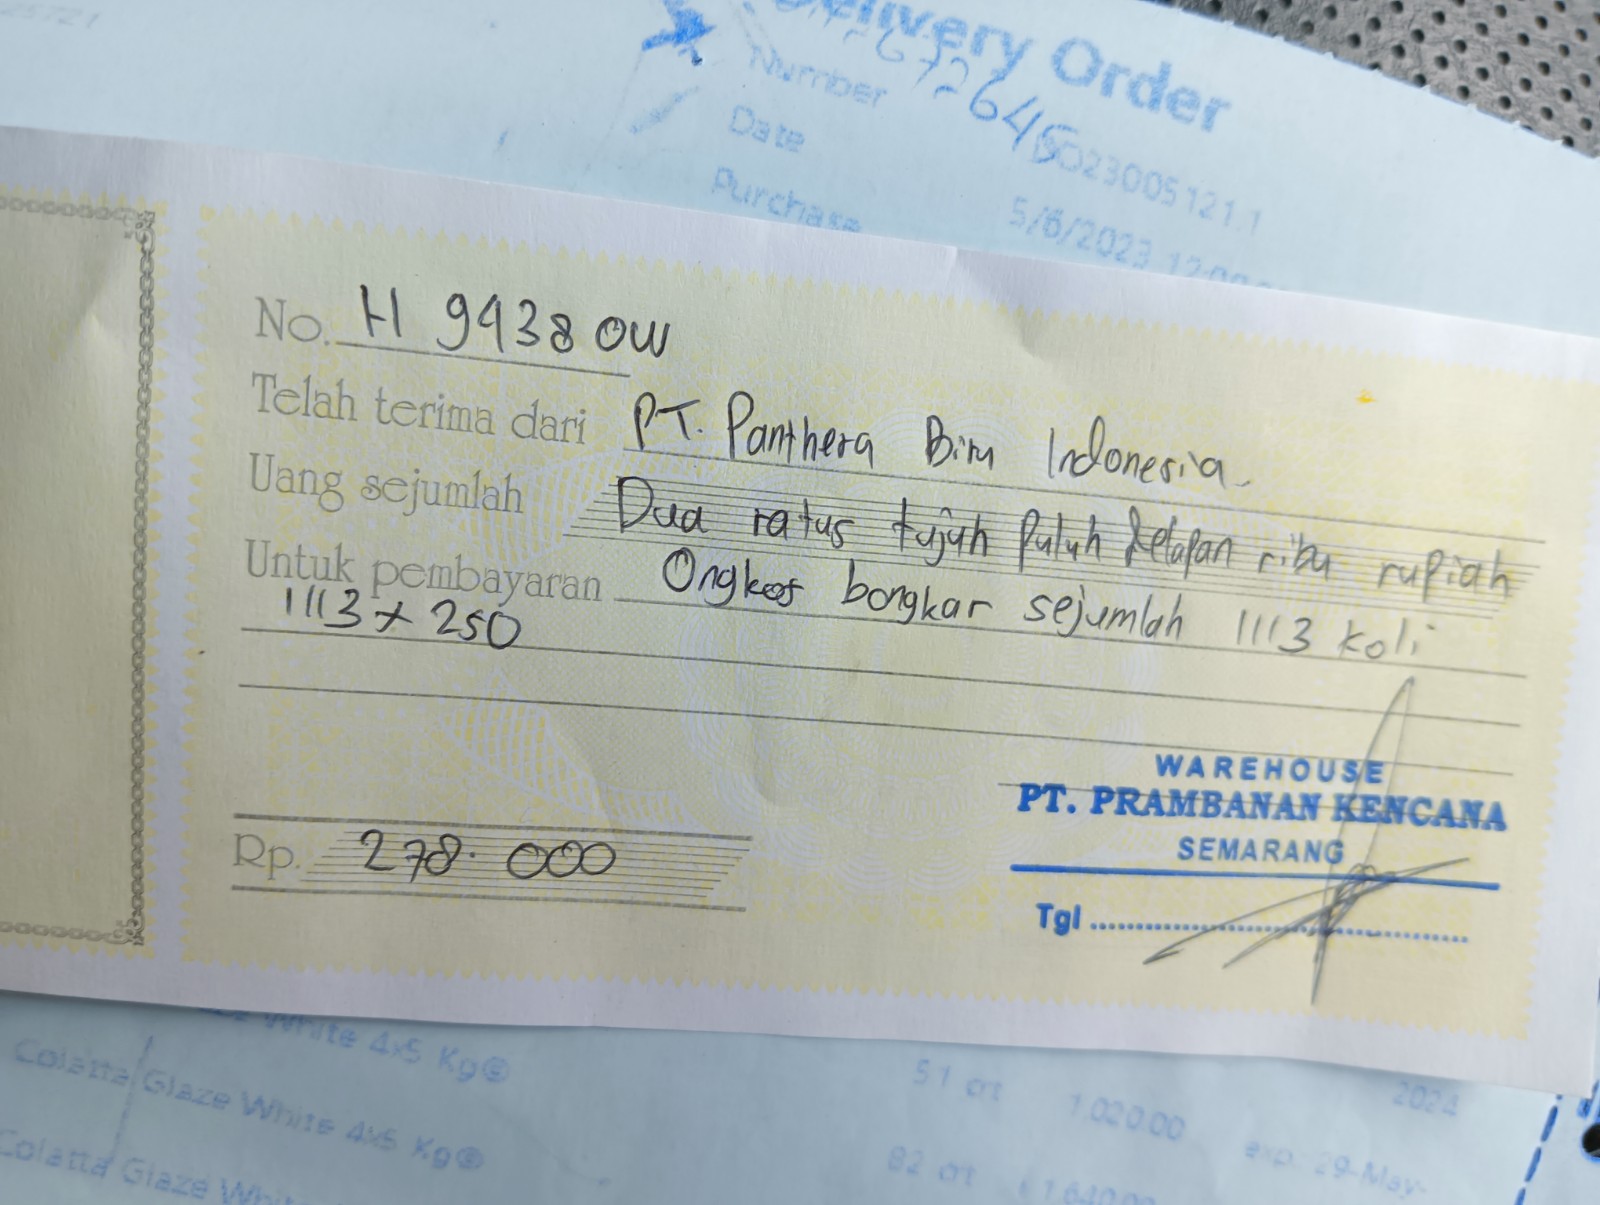 Delivery Order
Number
23005121.1
Date
5/6/2023
Purchase
No. H 9438 OW
Telah terima dari PT. Panthera Biru Indonesia
Uang sejumlah Dua ratus tujuh Puluh delapan ribu rupiah
Untuk pembayaran Ongkos bongkar sejumlah 1113 koli
1113 x 250
Rp. 278.000
WAREHOUSE
PT. PRAMBANAN KENCANA
SEMARANG
Tgl
White 4x5 Kg® 51 crt 1,020.00 2024
Colatta Glaze White 4x5 Kg® 82 crt exp. 29-May-
Colatta Glaze